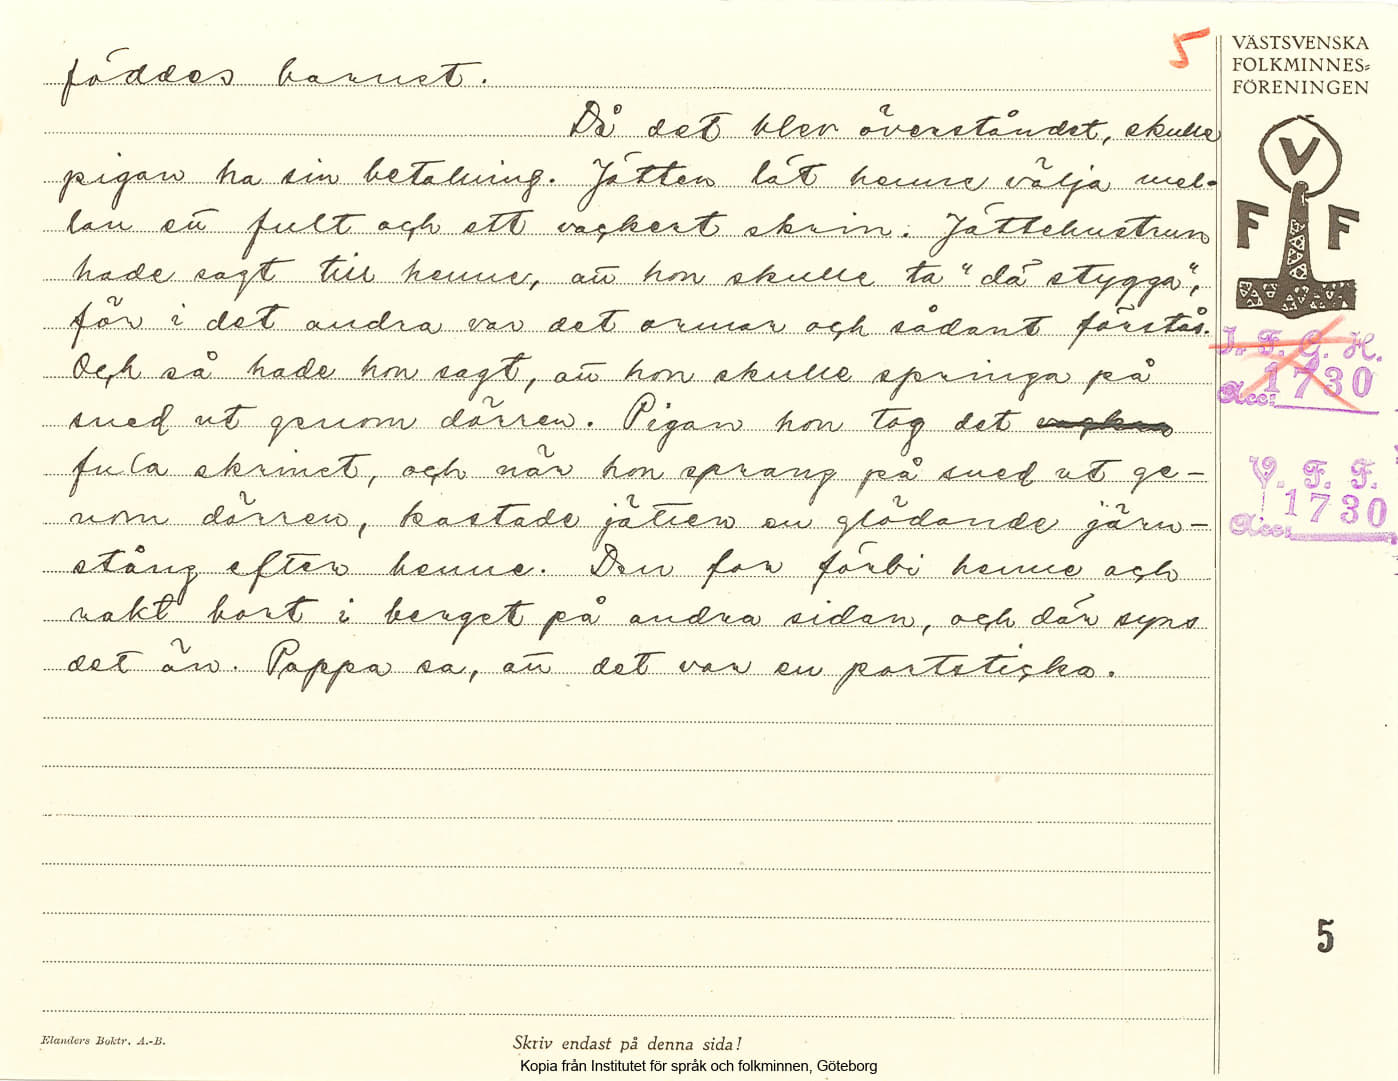 5
VÄSTSVENSKA
FOLKMINNES-
FÖRENINGEN
föddes barnet.
Då det blev överståndet, skulle
pigan ha sin betalning. Jätten lät henne välja mel-
lan ett fult och ett vackert skrin. Jättehustrun
hade sagt till henne, att hon skulle ta "dä stygga",
för i det andra var det ormar och sådant förstås.
Och så hade hon sagt, att hon skulle springa på
sned ut genom dörren. Pigan hon tog det vackra
fula skrinet, och när hon sprang på sned ut ge-
nom dörren, kastade jätten en glödande järn-
stång efter henne. Den for förbi henne och
rakt bort i berget på andra sidan, och där syns
det än. Pappa sa, att det var en portsticka.
V
F F
I. F. G. H.
Acc: 1730
V. F. F.
Acc: 1730
5
Elanders Boktr. A.-B.
Skriv endast på denna sida!
Kopia från Institutet för språk och folkminnen, Göteborg